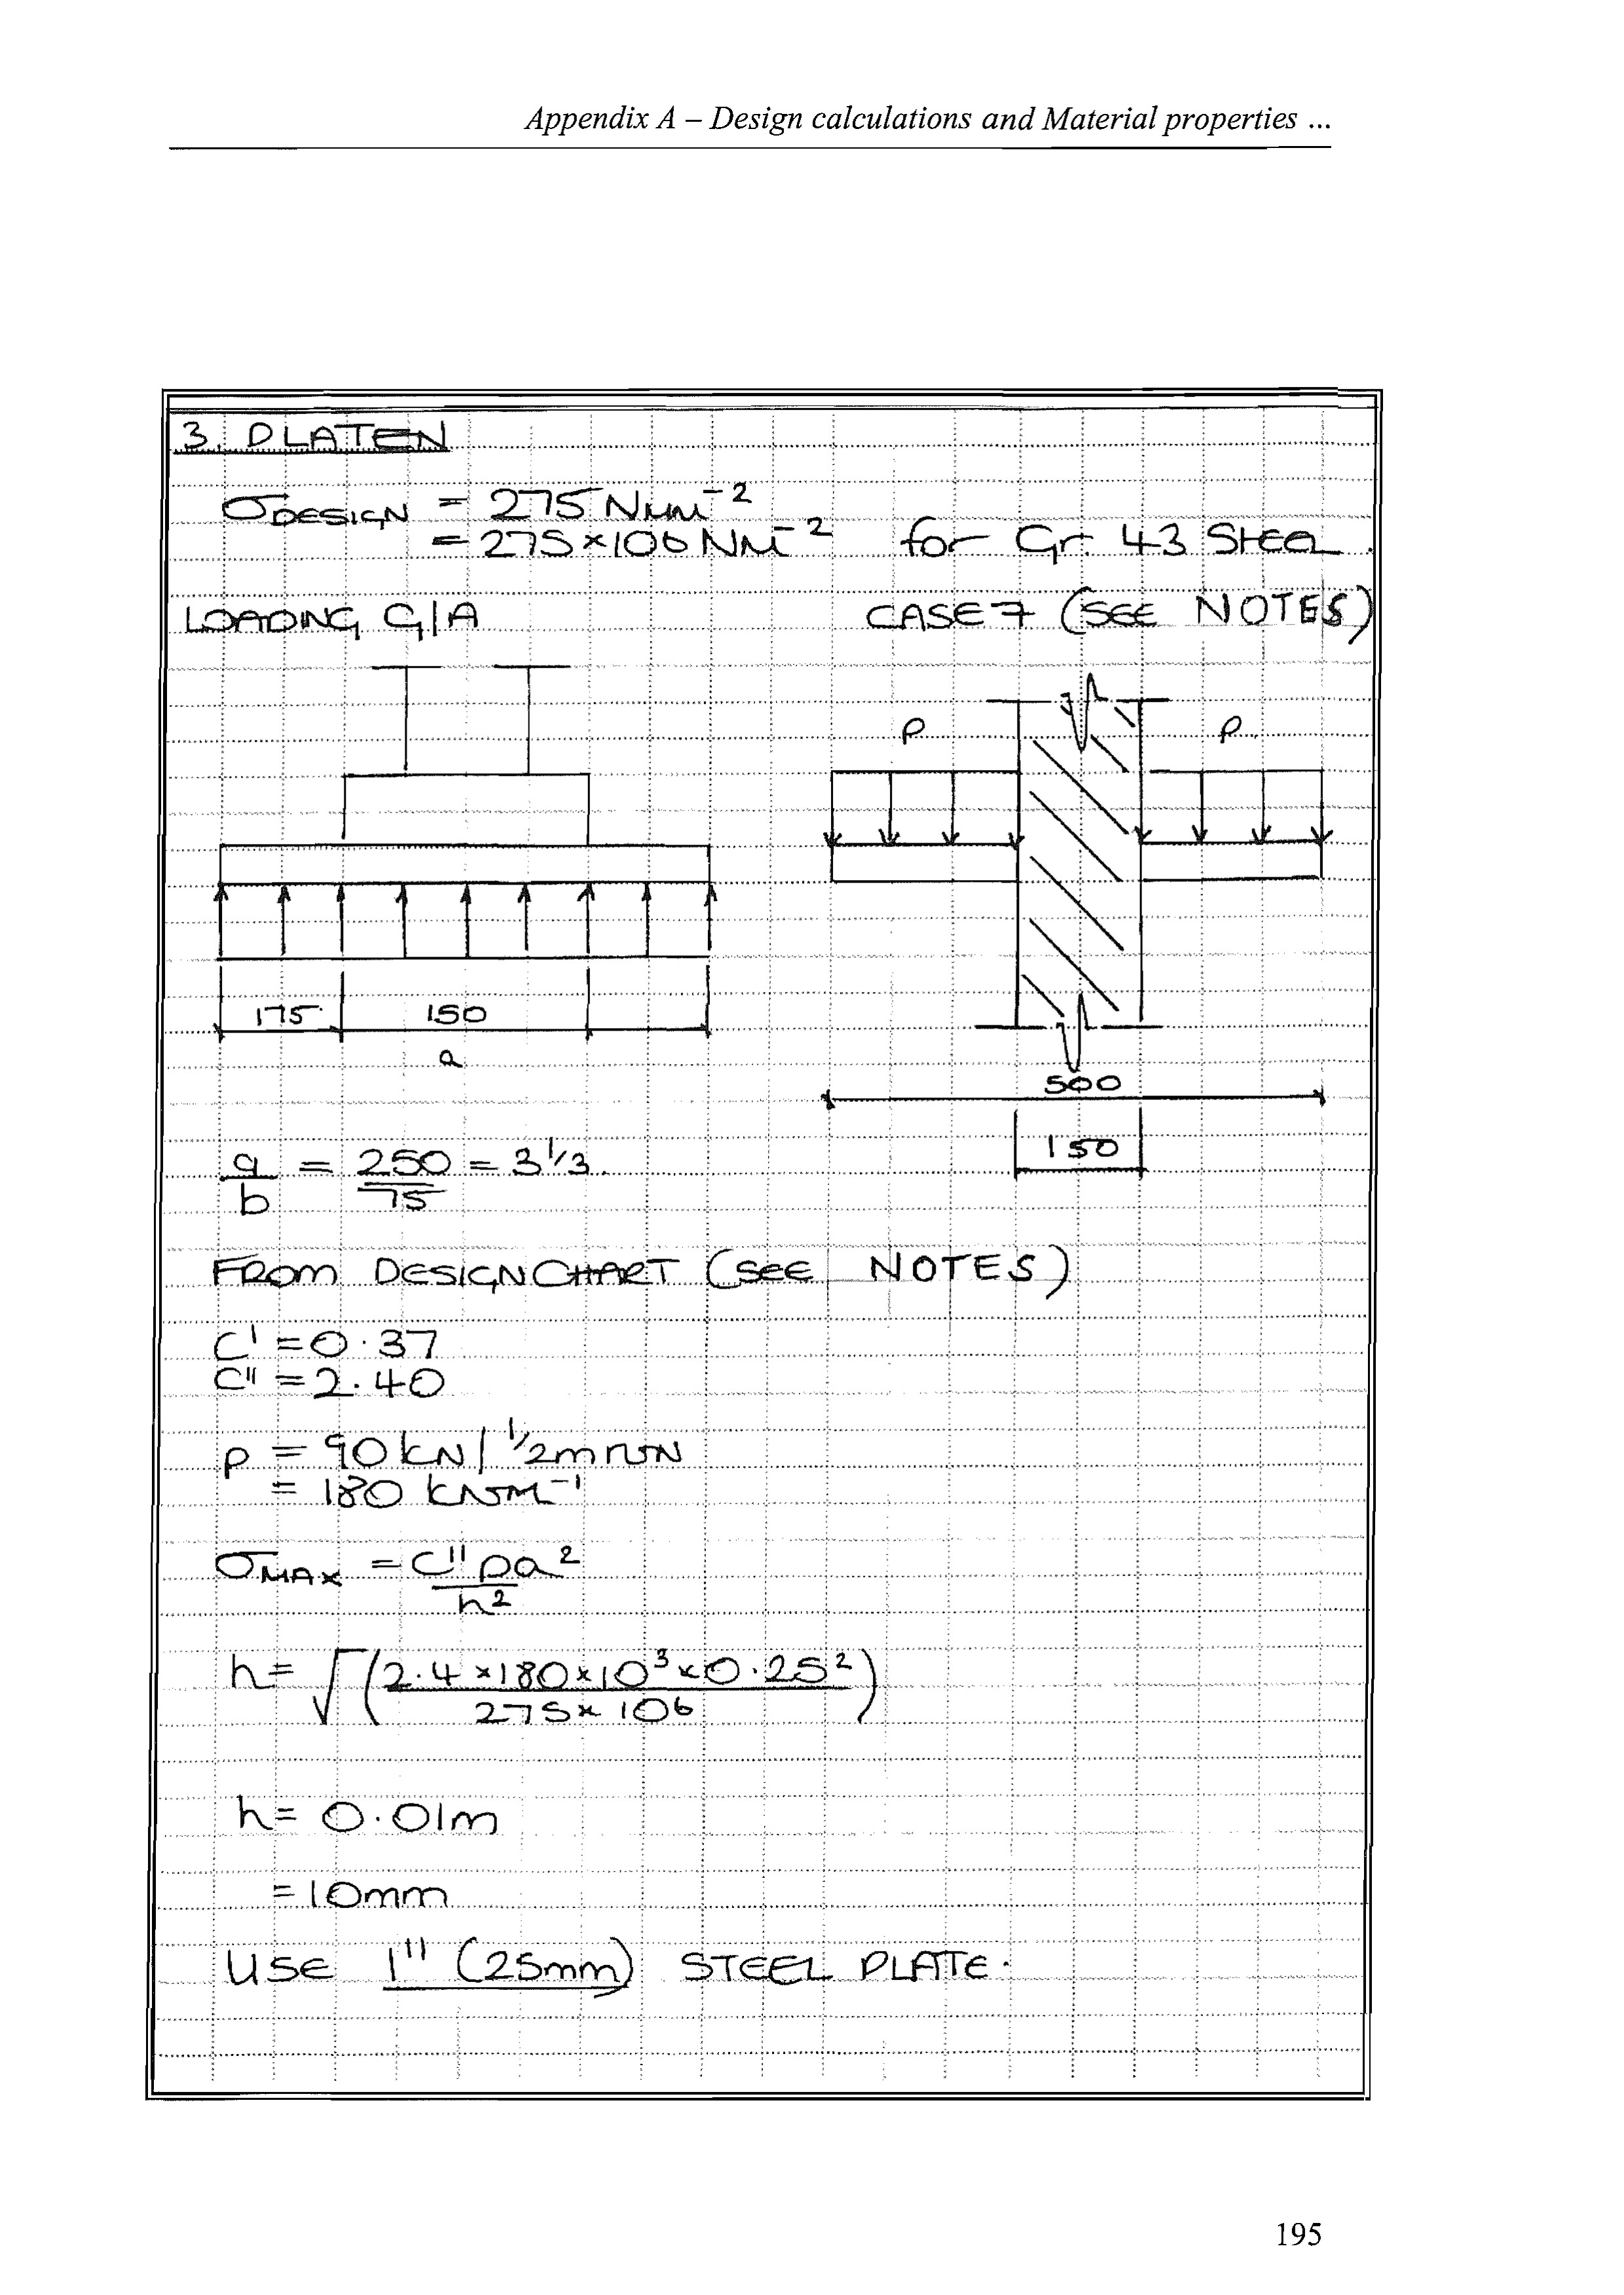 Appendix A – Design calculations and Material properties ...
3. PLATEN
σDESIGN = 275 Nmm⁻²
= 275 × 106 NM⁻² for Gr. 43 Steel.
LOADING G/A CASE 7 (SEE NOTES)
P P
175 150
a
500
150
a/b = 250/75 = 3 1/3.
FROM DESIGN CHART (SEE NOTES)
C' = 0.37
C" = 2.40
P = 90 kN/ 1/2 m RUN
= 180 kNM⁻¹
σMAX = C" pa²/h²
h = √(2.4 × 180 × 10³ × 0.25² / 275 × 106)
h = 0.01m
= 10mm
USE 1" (25mm) STEEL PLATE.
195